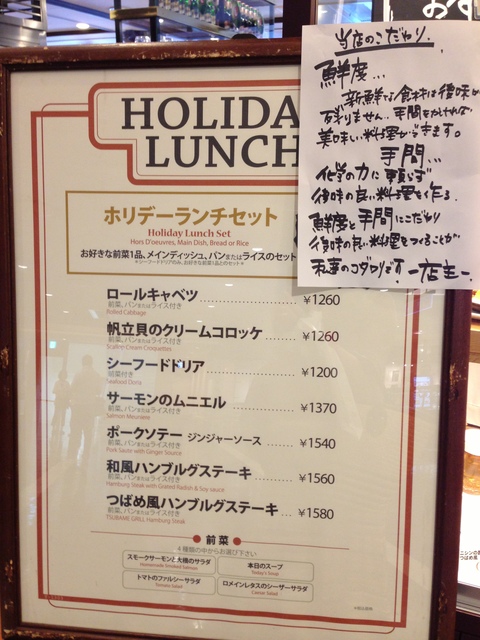 HOLIDA
LUNCH
ホリデーランチセット
Holiday Lunch Set
Hors D'oeuvres, Main Dish, Bread or Rice
お好きな前菜1品、メインディッシュ、パンまたはライスのセット
※シーフードドリアのみ、お好きな前菜1品とのセット※
ロールキャベツ ¥1260
前菜、パンまたはライス付き
Rolled Cabbage
帆立貝のクリームコロッケ ¥1260
前菜、パンまたはライス付き
Scallop Cream Croquettes
シーフードドリア ¥1200
前菜付き
Seafood Doria
サーモンのムニエル ¥1370
前菜、パンまたはライス付き
Salmon Meuniere
ポークソテー ジンジャーソース ¥1540
前菜、パンまたはライス付き
Pork Saute with Ginger Source
和風ハンブルグステーキ ¥1560
前菜、パンまたはライス付き
Hamburg Steak with Grated Radish & Soy sauce
つばめ風ハンブルグステーキ ¥1580
前菜、パンまたはライス付き
TSUBAME GRILL Hamburg Steak
前菜
4種類の中からお選び下さい
スモークサーモンと大根のサラダ
Homemade Smoked Salmon
本日のスープ
Today's Soup
トマトのファルシーサラダ
Tomato Salad
ロメインレタスのシーザーサラダ
Caesar Salad
当店のこだわり
鮮度...
新鮮な食材は後味が
残りません。手間をかければ
美味しい料理ができます。
手間...
化学の力に頼らず
後味の良い料理を作る。
鮮度と手間にこだわり
後味の良い料理をつくることが
私事のコダワリです ー店主ー